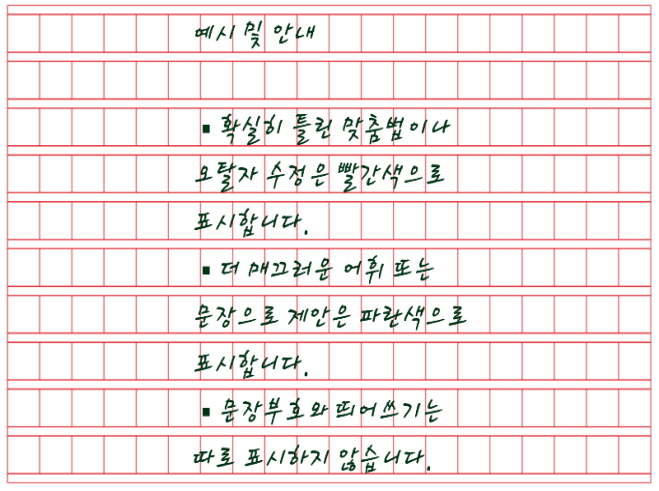 예시 및 안내
▪ 확실히 틀린 맞춤법이나
오탈자 수정은 빨간색으로
표시합니다.
▪ 더 매끄러운 어휘 또는
문장으로 제안은 파란색으로
표시합니다.
▪ 문장부호와 띄어쓰기는
따로 표시하지 않습니다.